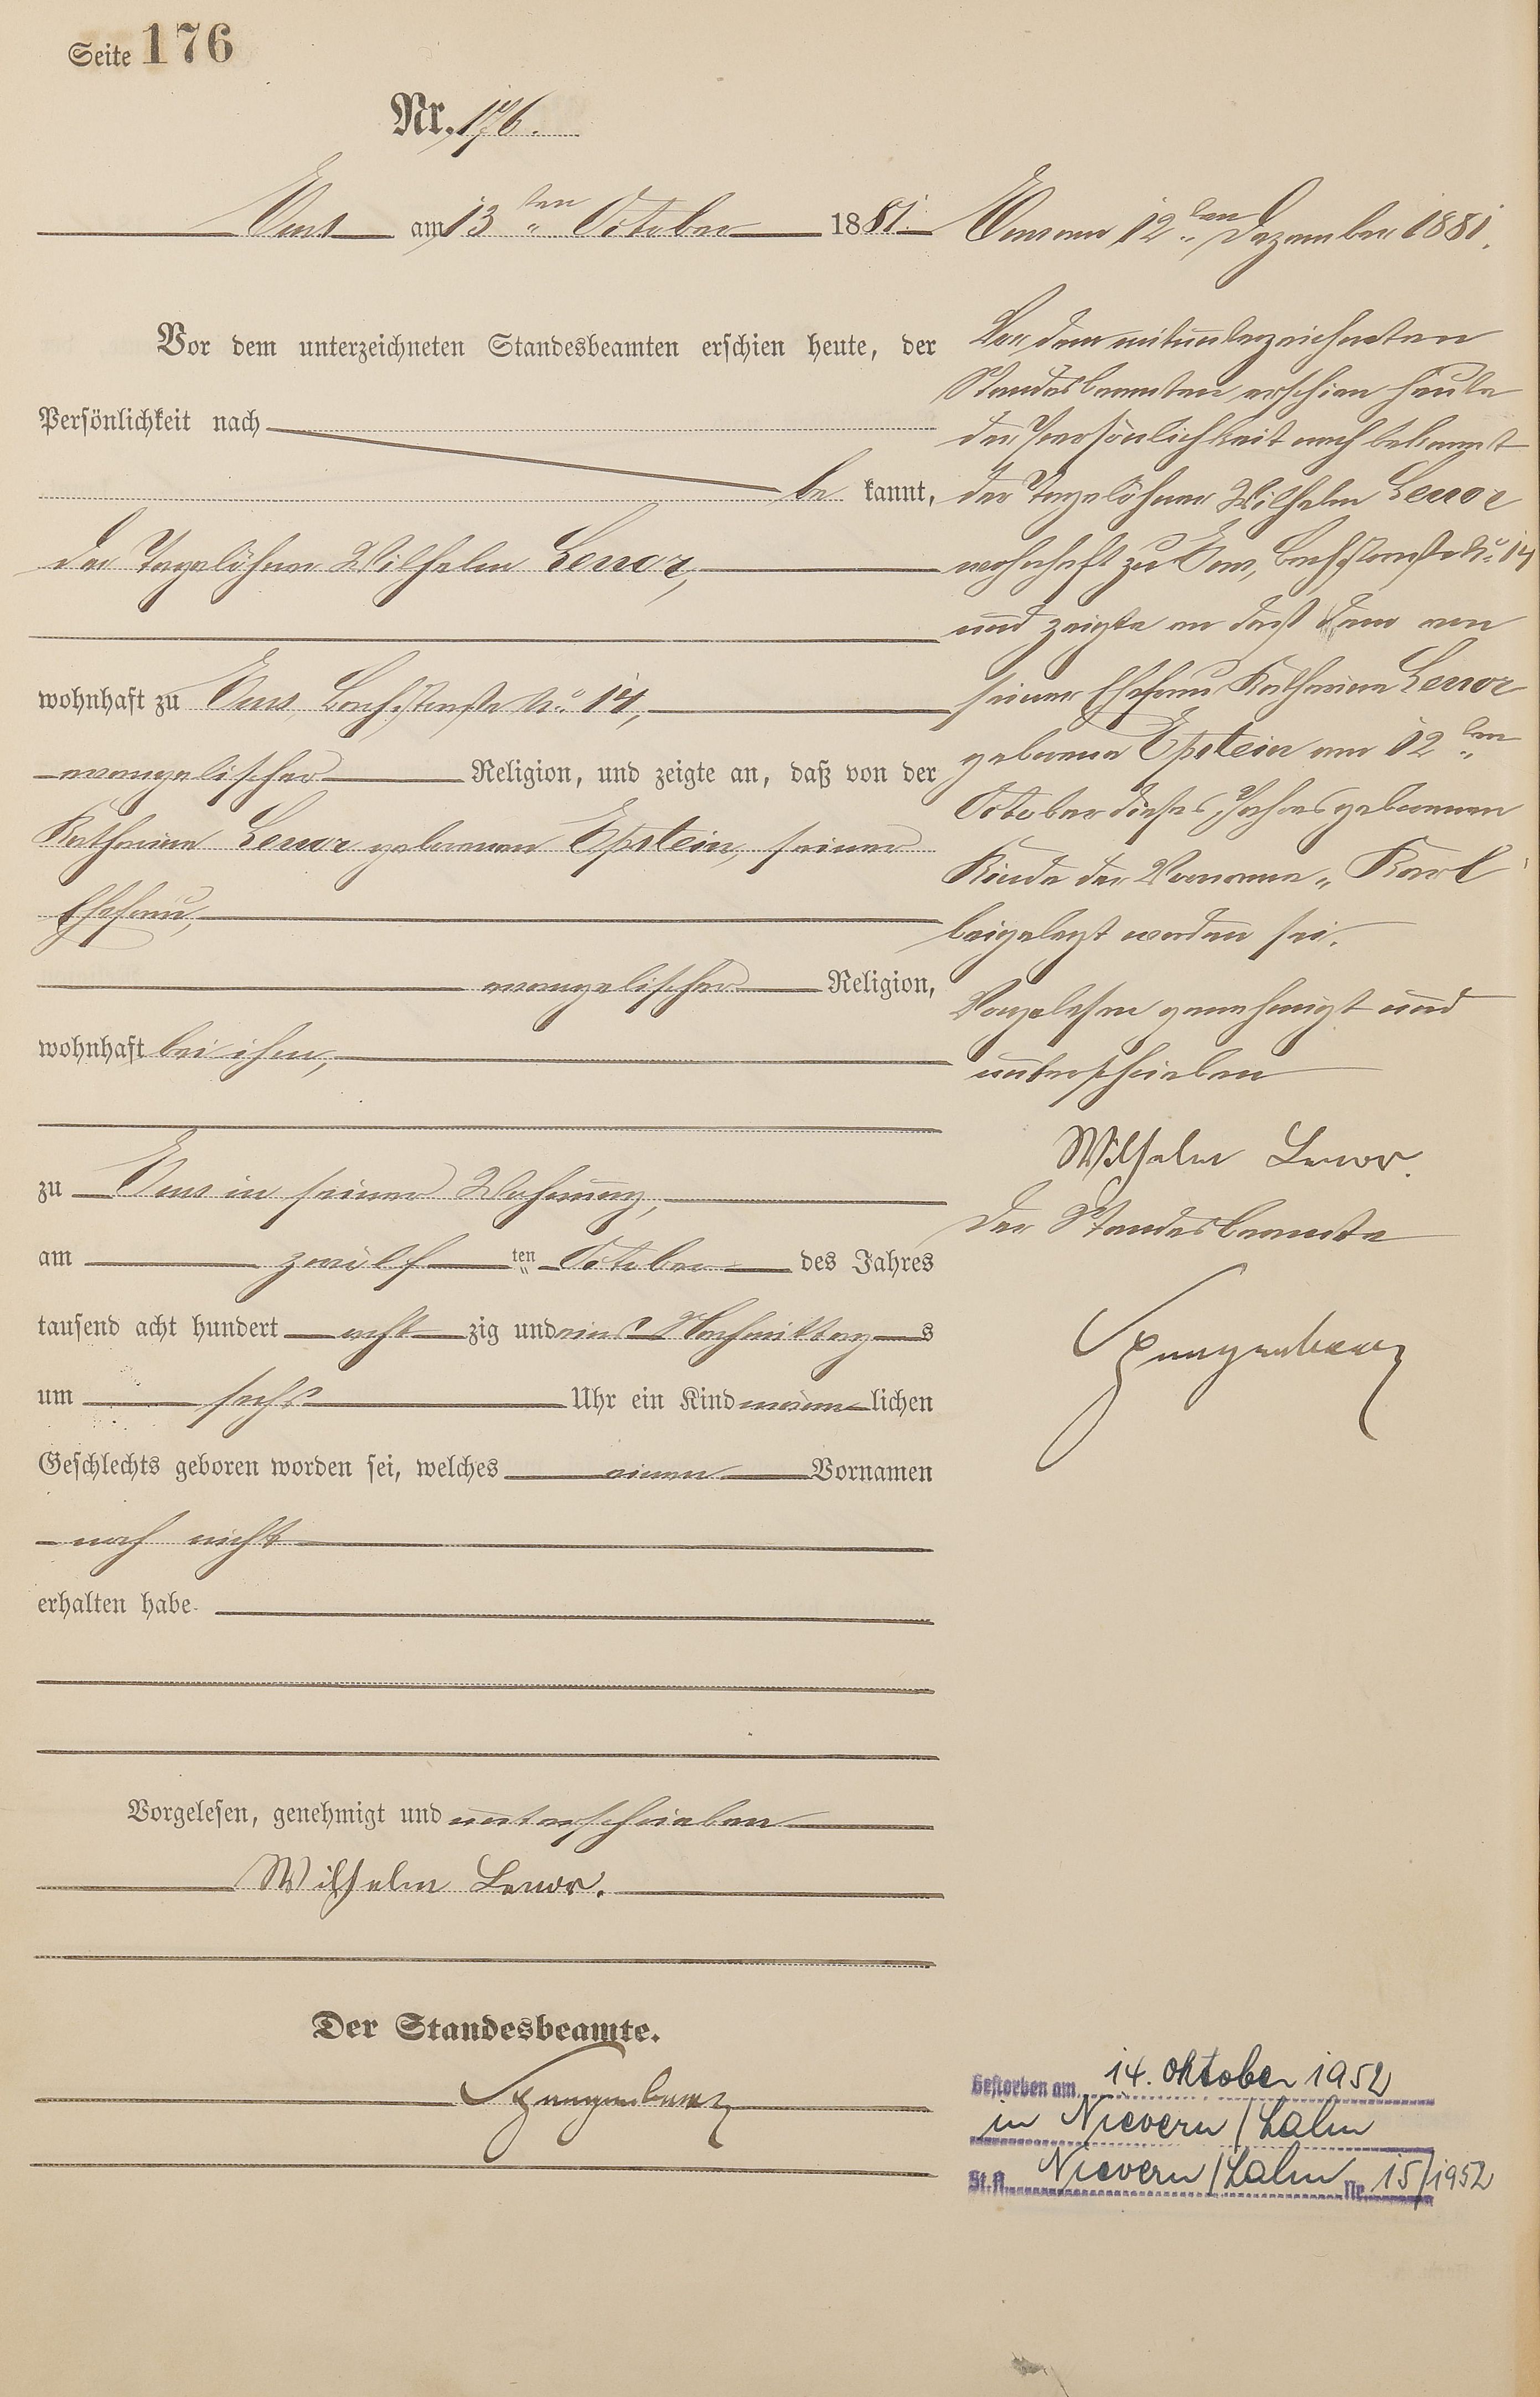 Seite 176
Nr. 176.
Ems am 13ten October 1881.
Vor dem unterzeichneten Standesbeamten erschien heute, der
Persönlichkeit nach
be kannt,
der Tagelöhner Wilhelm Lenor,
wohnhaft zu Ems, Bachstraße No. 14,
evangelischer Religion, und zeigte an, daß von der
Katharina Lenor geborenen Epstein, seiner
Ehefrau,
evangelischer Religion,
wohnhaft bei ihm,
zu Ems in seiner Wohnung,
am zwölf ten October des Jahres
tausend acht hundert acht zig und eins Nachmittag s
um sechs Uhr ein Kind männ lichen
Geschlechts geboren worden sei, welches einen Vornamen
noch nicht
erhalten habe.
Vorgelesen, genehmigt und unterschrieben
Wilhelm Lenor.
Der Standesbeamte.
Ems am 12ten Dezember 1881.
Vor dem mitunterzeichneten
Standesbeamten erschien heute
der Persönlichkeit nach bekannt
der Tagelöhner Wilhelm Lenor
wohnhaft zu Ems, Bachstraße No. 14
und zeigte an daß dem von
seiner Ehefrau Katharina Lenor
geborene Epstein am 12ten
October dieses Jahres geborenen
Kinde der Vorname „Karl"
beigelegt worden sei.
Vorgelesen genehmigt und
unterschrieben
Wilhelm Lenor.
Der Standesbeamte
Gestorben am 14. Oktober 1952
in Nievern/Lahn
St.A. Nievern/Lahn Nr. 15/1952